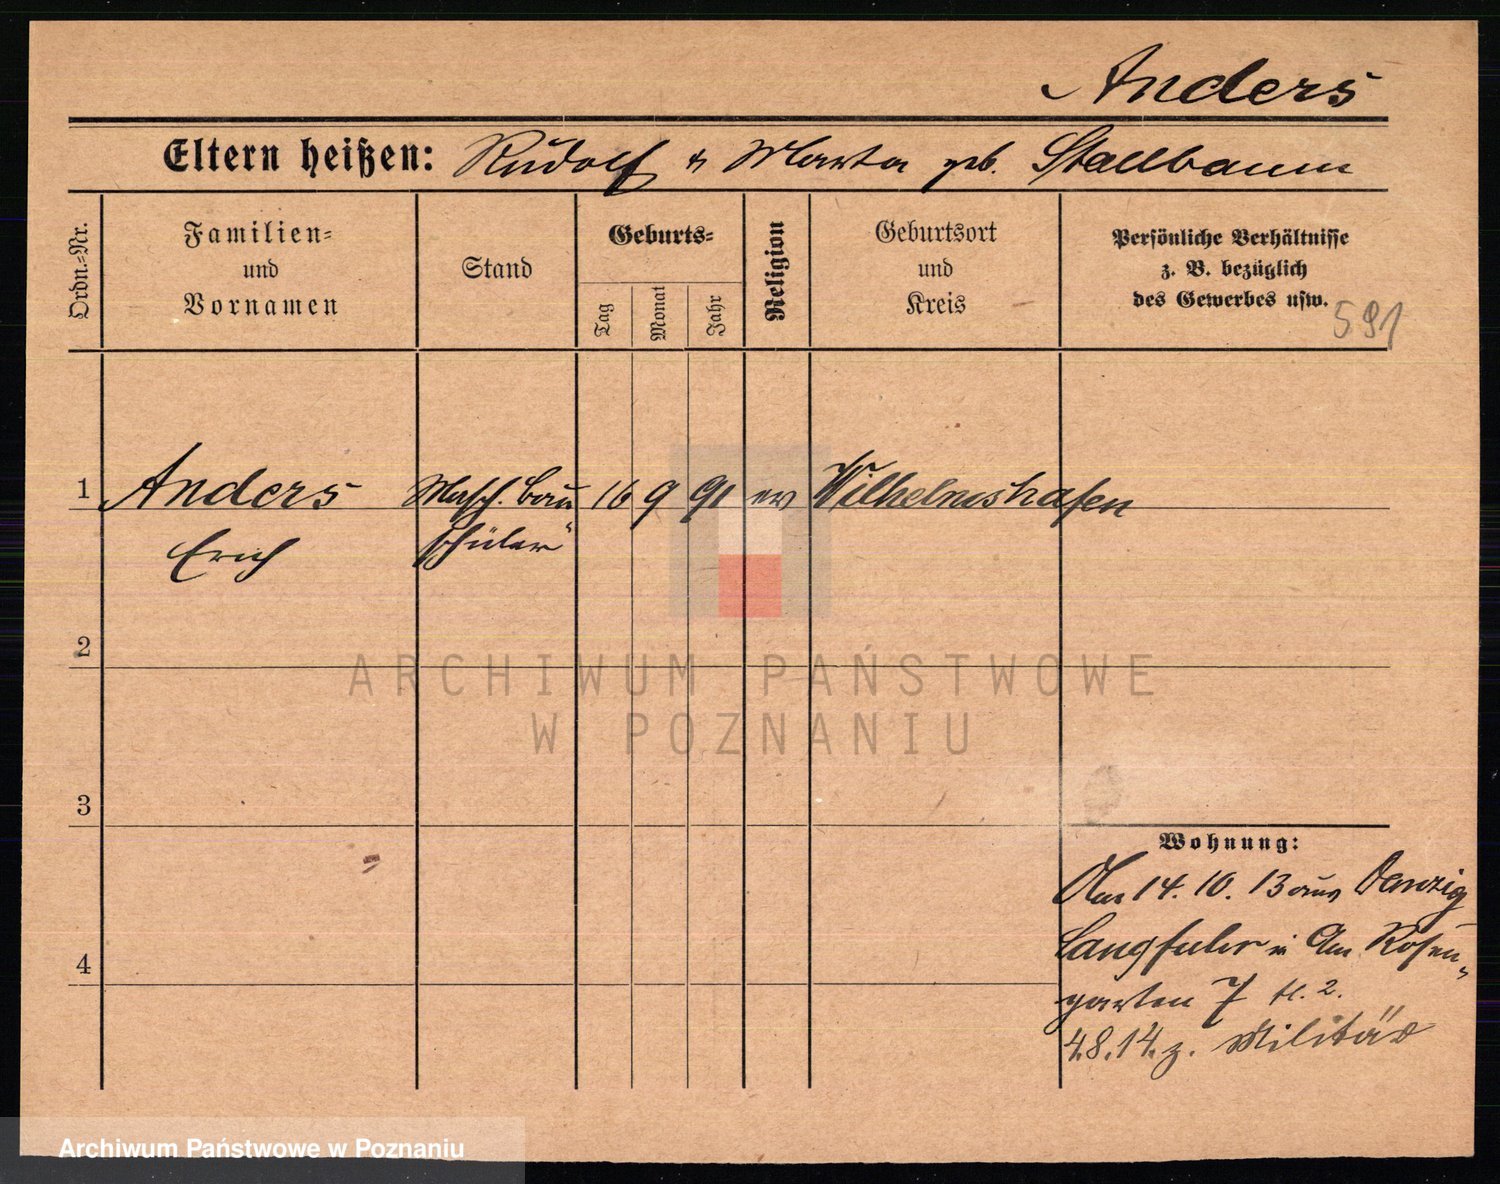 Anders
Eltern heißen: Rudolf u Marta geb. Stallbaum
Ordn.-Nr.
Familien-
und
Vornamen
Stand
Geburts-
Tag
Monat
Jahr
Religion
Geburtsort
und
Kreis
Persönliche Verhältnisse
z. B. bezüglich
des Gewerbes usw.
591
1 Anders Masch. bau 16 9 91 ev Wilhelmshafen
Erich schüler
2
ARCHIWUM PAŃSTWOWE
W POZNANIU
3
Wohnung:
Am 14. 10. 13 aus Danzig
Langfuhr i Am Rosen-
4
garten 7 II. 2.
4.8.14. z. Militär
Archiwum Państwowe w Poznaniu